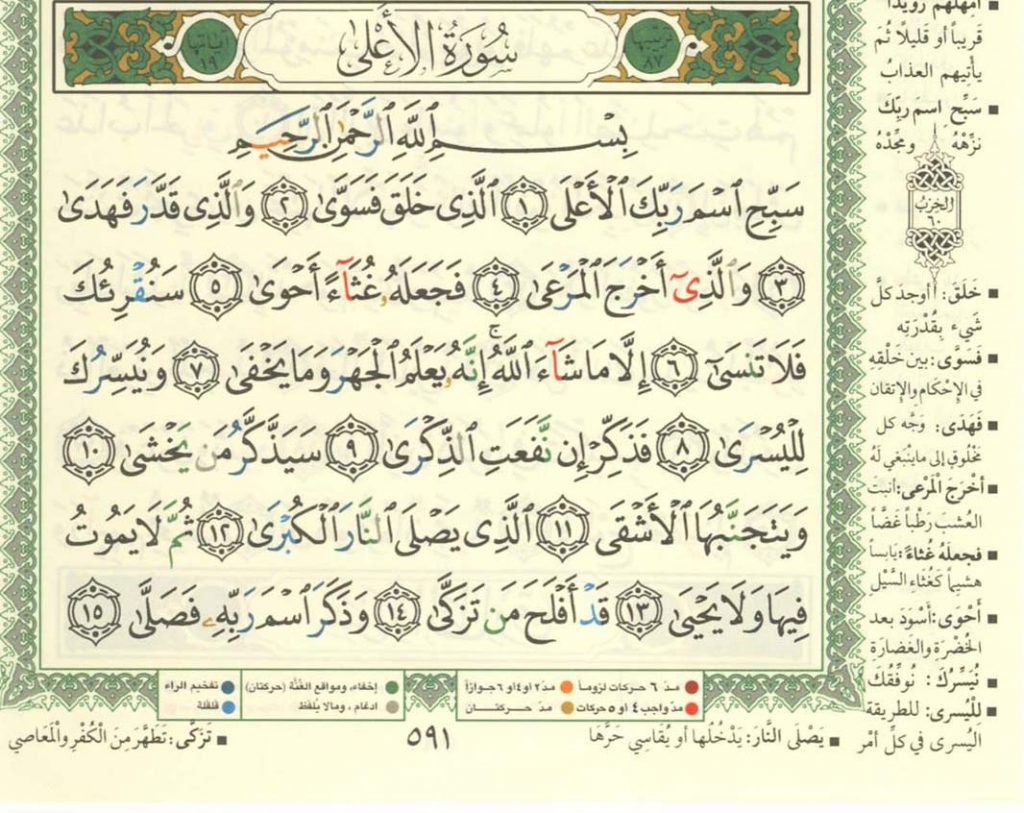 آياتها ١٩
سُورَةُ الأَعْلَى
ترتيبها ٨٧
بِسْمِ ٱللَّهِ ٱلرَّحْمَٰنِ ٱلرَّحِيمِ
سَبِّحِ ٱسْمَ رَبِّكَ ٱلْأَعْلَى ١ ٱلَّذِى خَلَقَ فَسَوَّىٰ ٢ وَٱلَّذِى قَدَّرَ فَهَدَىٰ
٣ وَٱلَّذِىٓ أَخْرَجَ ٱلْمَرْعَىٰ ٤ فَجَعَلَهُۥ غُثَآءً أَحْوَىٰ ٥ سَنُقْرِئُكَ
فَلَا تَنسَىٰٓ ٦ إِلَّا مَا شَآءَ ٱللَّهُ ۚ إِنَّهُۥ يَعْلَمُ ٱلْجَهْرَ وَمَا يَخْفَىٰ ٧ وَنُيَسِّرُكَ
لِلْيُسْرَىٰ ٨ فَذَكِّرْ إِن نَّفَعَتِ ٱلذِّكْرَىٰ ٩ سَيَذَّكَّرُ مَن يَخْشَىٰ ١٠
وَيَتَجَنَّبُهَا ٱلْأَشْقَى ١١ ٱلَّذِى يَصْلَى ٱلنَّارَ ٱلْكُبْرَىٰ ١٢ ثُمَّ لَا يَمُوتُ
فِيهَا وَلَا يَحْيَىٰ ١٣ قَدْ أَفْلَحَ مَن تَزَكَّىٰ ١٤ وَذَكَرَ ٱسْمَ رَبِّهِۦ فَصَلَّىٰ ١٥
أمهلهم رويداً
قريباً أو قليلاً ثُم
يأتيهم العذابُ
سَبِّحِ اسْمَ رَبِّكَ
نزِّهْهُ ومجِّدْهُ
الحِزبُ
٦٠
خَلَقَ: أوجدَ كلَّ
شَيْءٍ بِقُدْرَتِه
فَسَوَّى: بين خَلْقِهِ
في الإِحْكَامِ والإِتقان
فَهَدَى: وَجَّه كل
مَخْلُوقٍ إلى ما ينبَغي لَهُ
أَخْرَجَ الْمَرْعى: أنبتَ
العُشبَ رَطْباً غَضّاً
فجعلهُ غُثاءً: يَابِساً
هشيماً كَغُثاءِ السَّيْل
أَحْوَى: أَسْوَدَ بعد
الخُضْرَةِ والغَضارَة
نُيَسِّرُكَ: نُوفِّقُكَ
لِلْيُسرى: للطريقة
اليُسرى في كلِّ أمْر
مدّ ٦ حركات لزوماً مدّ ٢ أو ٤ أو ٦ جوازاً
مدّ واجب ٤ أو ٥ حركات مدّ حركتان
إخفاء، ومواقع الغُنَّة (حركتان) تفخيم الراء
ادغام، ومالا يُلفظ قلقلة
يَصْلَى النَّار: يَدْخُلُها أو يُقَاسِي حَرَّهَا
٥٩١
تَزَكَّى: تَطَهَّرَ مِنَ الْكُفْرِ والْمَعَاصِي